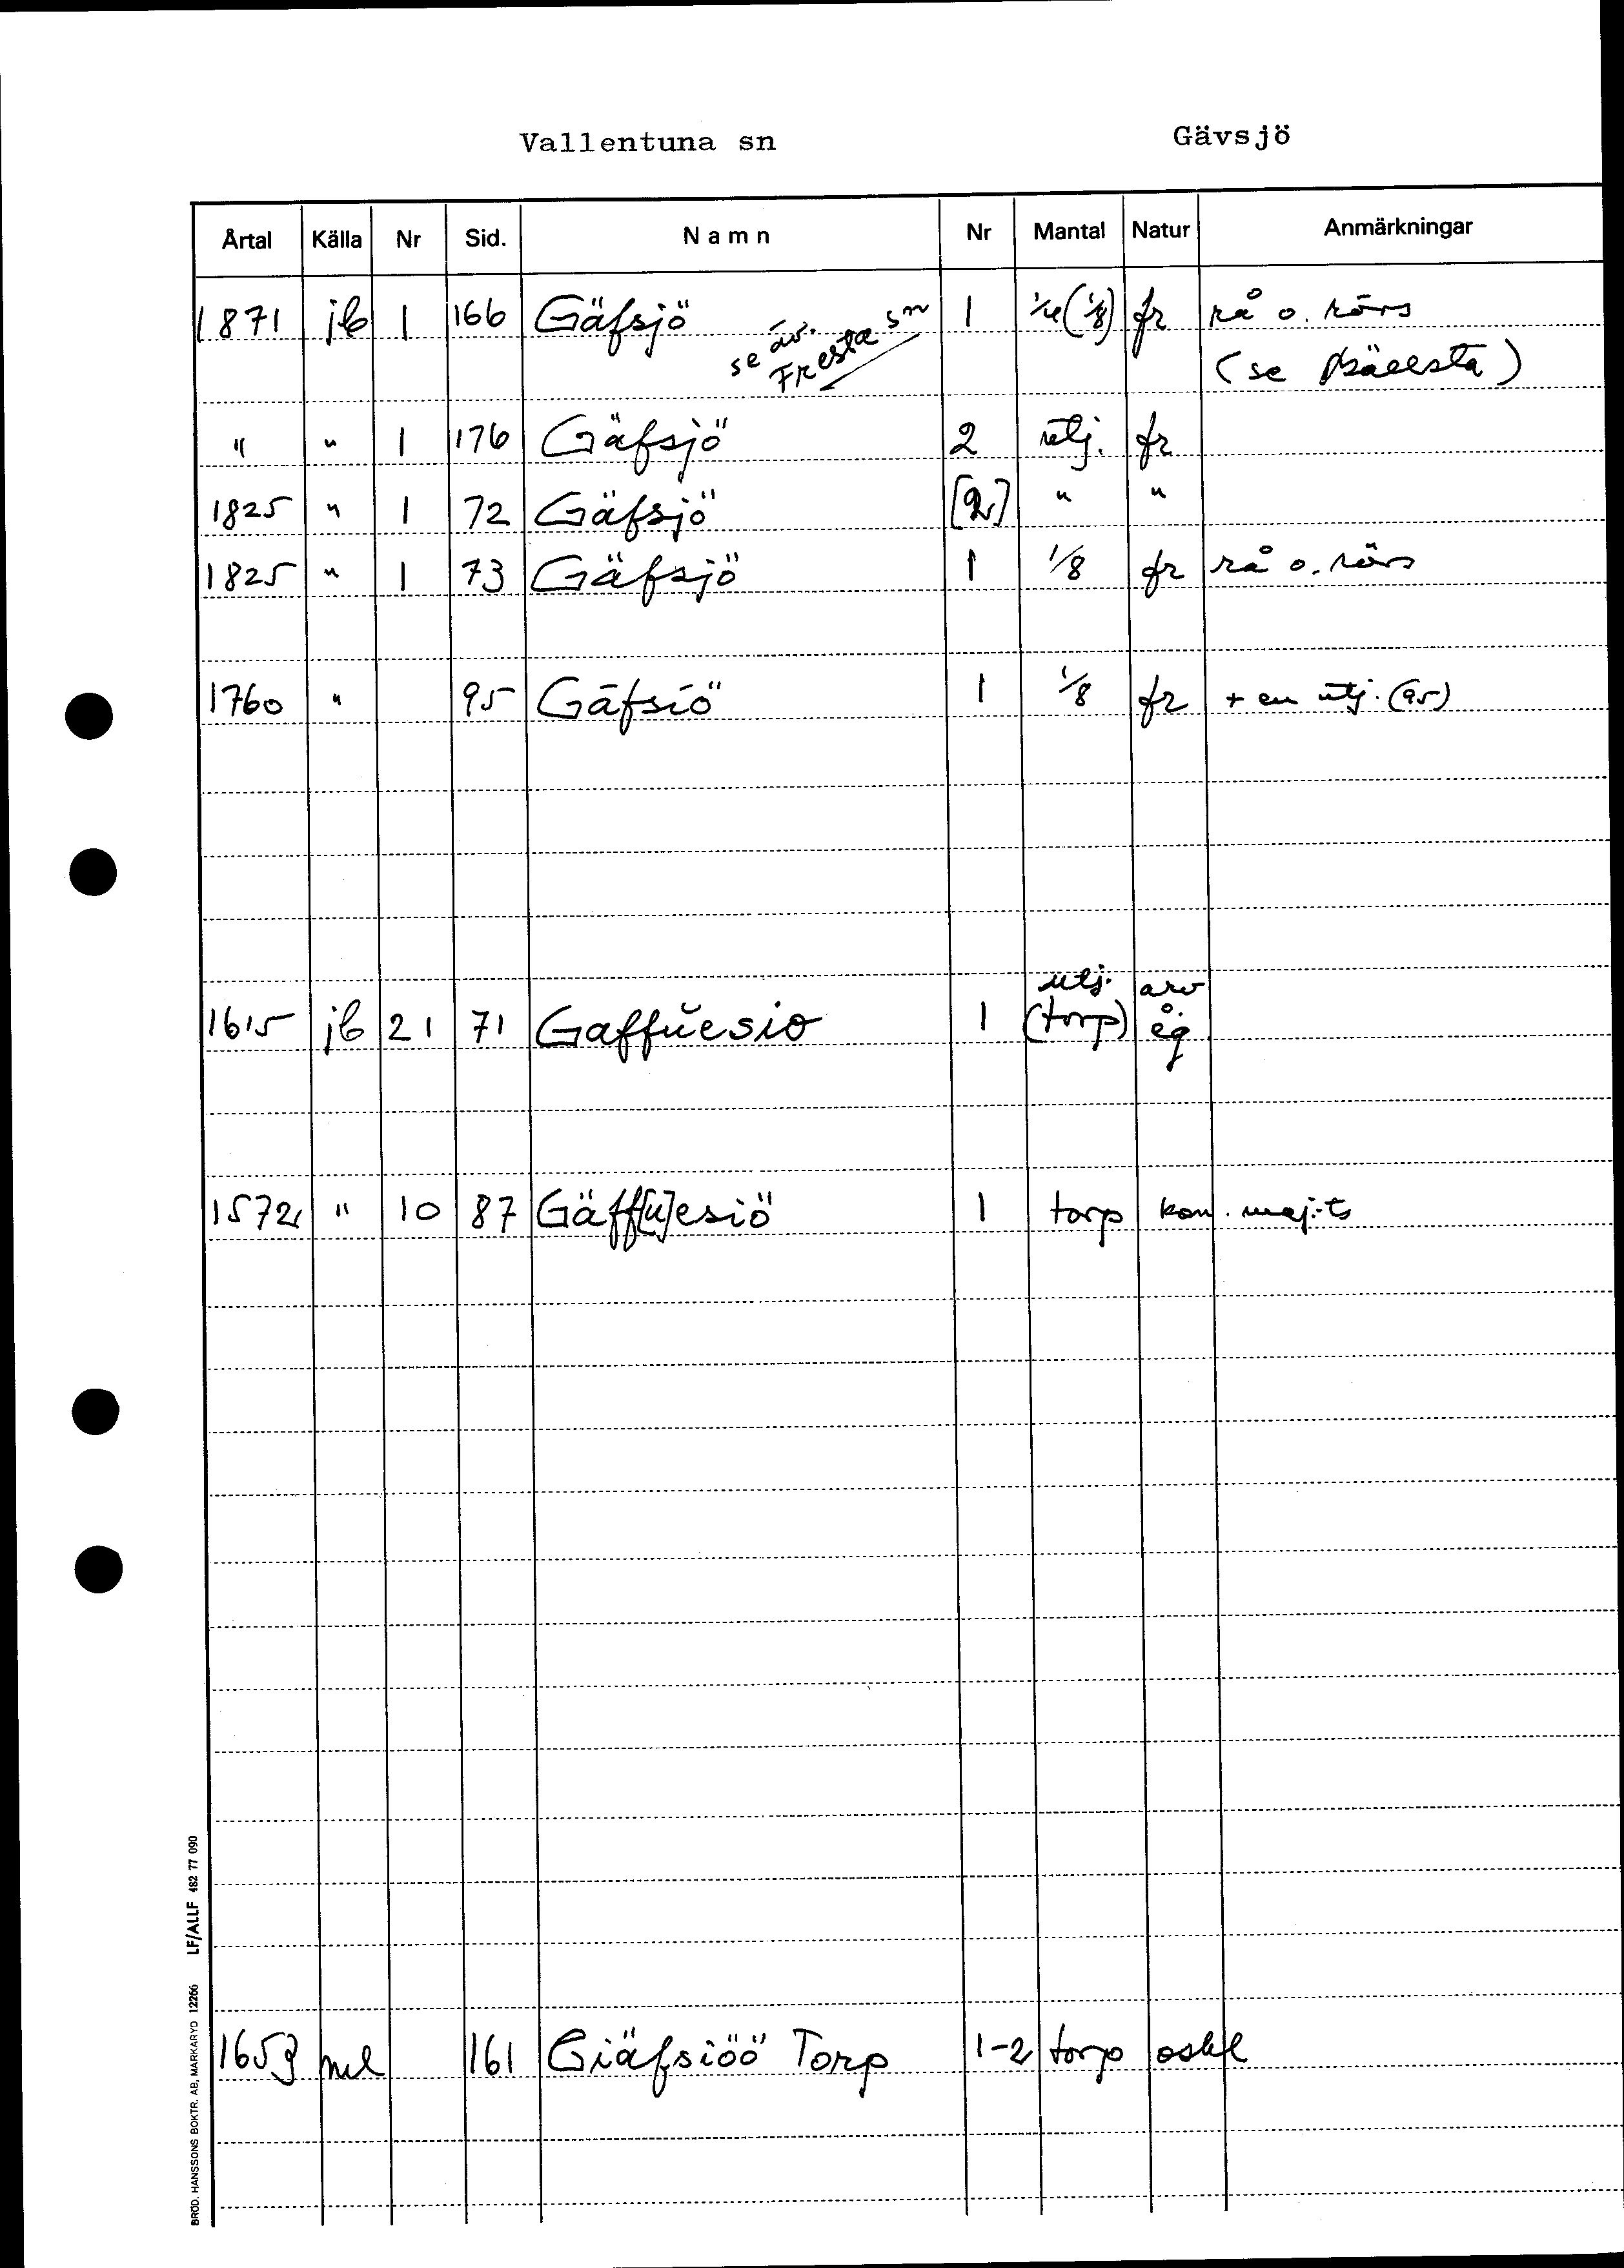 Vallentuna sn Gävsjö
Årtal Källa Nr Sid. Namn Nr Mantal Natur Anmärkningar
1871 jb 1 166 Gäfsjö 1 (1/8) fr rå o. rörs
se äv. Fresta sn
(se Bällsta)
" " 1 176 Gäfsjö 2 utj. fr
1825 " 1 72 Gäfsjö [2] " "
1825 " 1 73 Gäfsjö 1 1/8 fr rå o. rörs
1760 " 95 Gäfsiö 1 1/8 fr + en utj. (95)
utj. arv
1615 jb 21 71 Gaffŭesio 1 (torp) o. eg
1572 " 10 87 Gäff[u]esiö 1 torp kon. maj:ts
1653 ml 161 Giäfsiöö Torp 1-2 torp oskl
BRÖD. HANSSONS BOKTR. AB, MARKARYD 12266 LF/ALLF 482 77 090